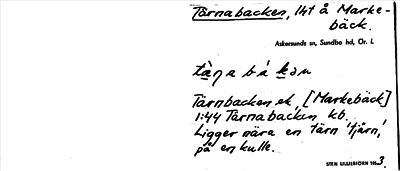 Tärnabacken, lht å Marke-
bäck.
Askersunds sn, Sundbo hd, Ör. l.
Tärnbacken ek, [Markebäck]
1:44 Tärnabacken kb.
Ligger nära en tärn 'tjärn,'
på en kulle.
STEN LILLIEBJÖRN 193.